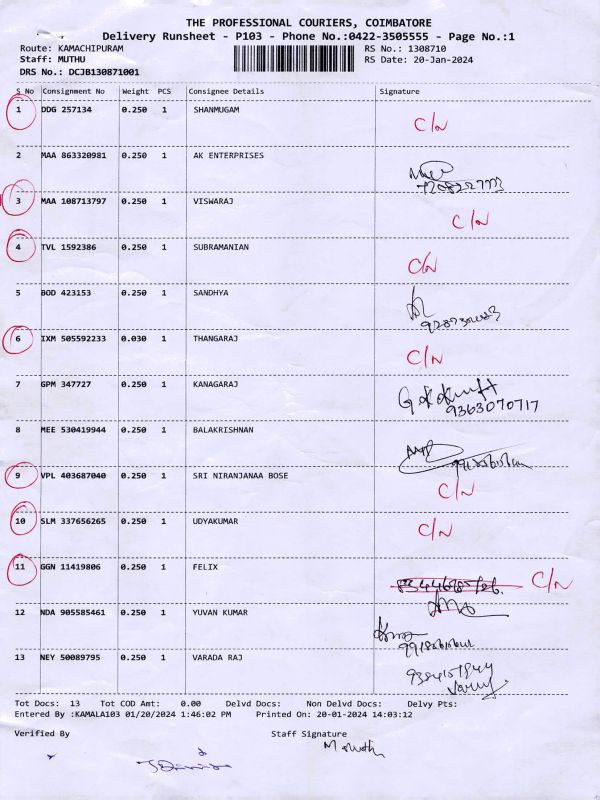 THE PROFESSIONAL COURIERS, COIMBATORE
Delivery Runsheet - P103 - Phone No.:0422-3505555 - Page No.:1
Route: KAMACHIPURAM RS No.: 1308710
Staff: MUTHU RS Date: 20-Jan-2024
DRS No.: DCJB130871001
S No Consignment No Weight PCS Consignee Details Signature
1 DDG 257134 0.250 1 SHANMUGAM C/N
2 MAA 863320981 0.250 1 AK ENTERPRISES
3 MAA 108713797 0.250 1 VISWARAJ C/N
4 TVL 1592386 0.250 1 SUBRAMANIAN C/N
5 BOD 423153 0.250 1 SANDHYA
6 IXM 505592233 0.030 1 THANGARAJ C/N
7 GPM 347727 0.250 1 KANAGARAJ
9363070717
8 MEE 530419944 0.250 1 BALAKRISHNAN
9 VPL 403687040 0.250 1 SRI NIRANJANAA BOSE C/N
10 SLM 337656265 0.250 1 UDYAKUMAR C/N
11 GGN 11419806 0.250 1 FELIX C/N
12 NDA 905585461 0.250 1 YUVAN KUMAR
13 NEY 50089795 0.250 1 VARADA RAJ
Tot Docs: 13 Tot COD Amt: 0.00 Delvd Docs: Non Delvd Docs: Delvy Pts:
Entered By :KAMALA103 01/20/2024 1:46:02 PM Printed On: 20-01-2024 14:03:12
Verified By Staff Signature